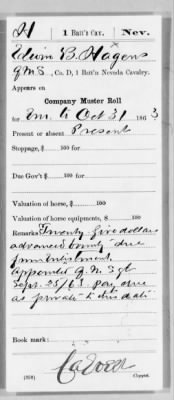 H | 1 Batt'n Cav. | Nev.
Edwin B. Hagens
Q.M.S., Co. D, 1 Batt'n Nevada Cavalry.
Appears on
Company Muster Roll
for Em. to Oct 31, 1863
Present or absent Present
Stoppage, $ 100 for
Due Gov't $ 100 for
Valuation of horse, $ 100
Valuation of horse equipments, $ 100
Remarks Twenty-five dollars
advanced bounty due
from Enlistment.
Appointed Q.M. Sgt
Sept. 25/63 Pay due
as private to this date
Book mark:
(358)
Copyist.